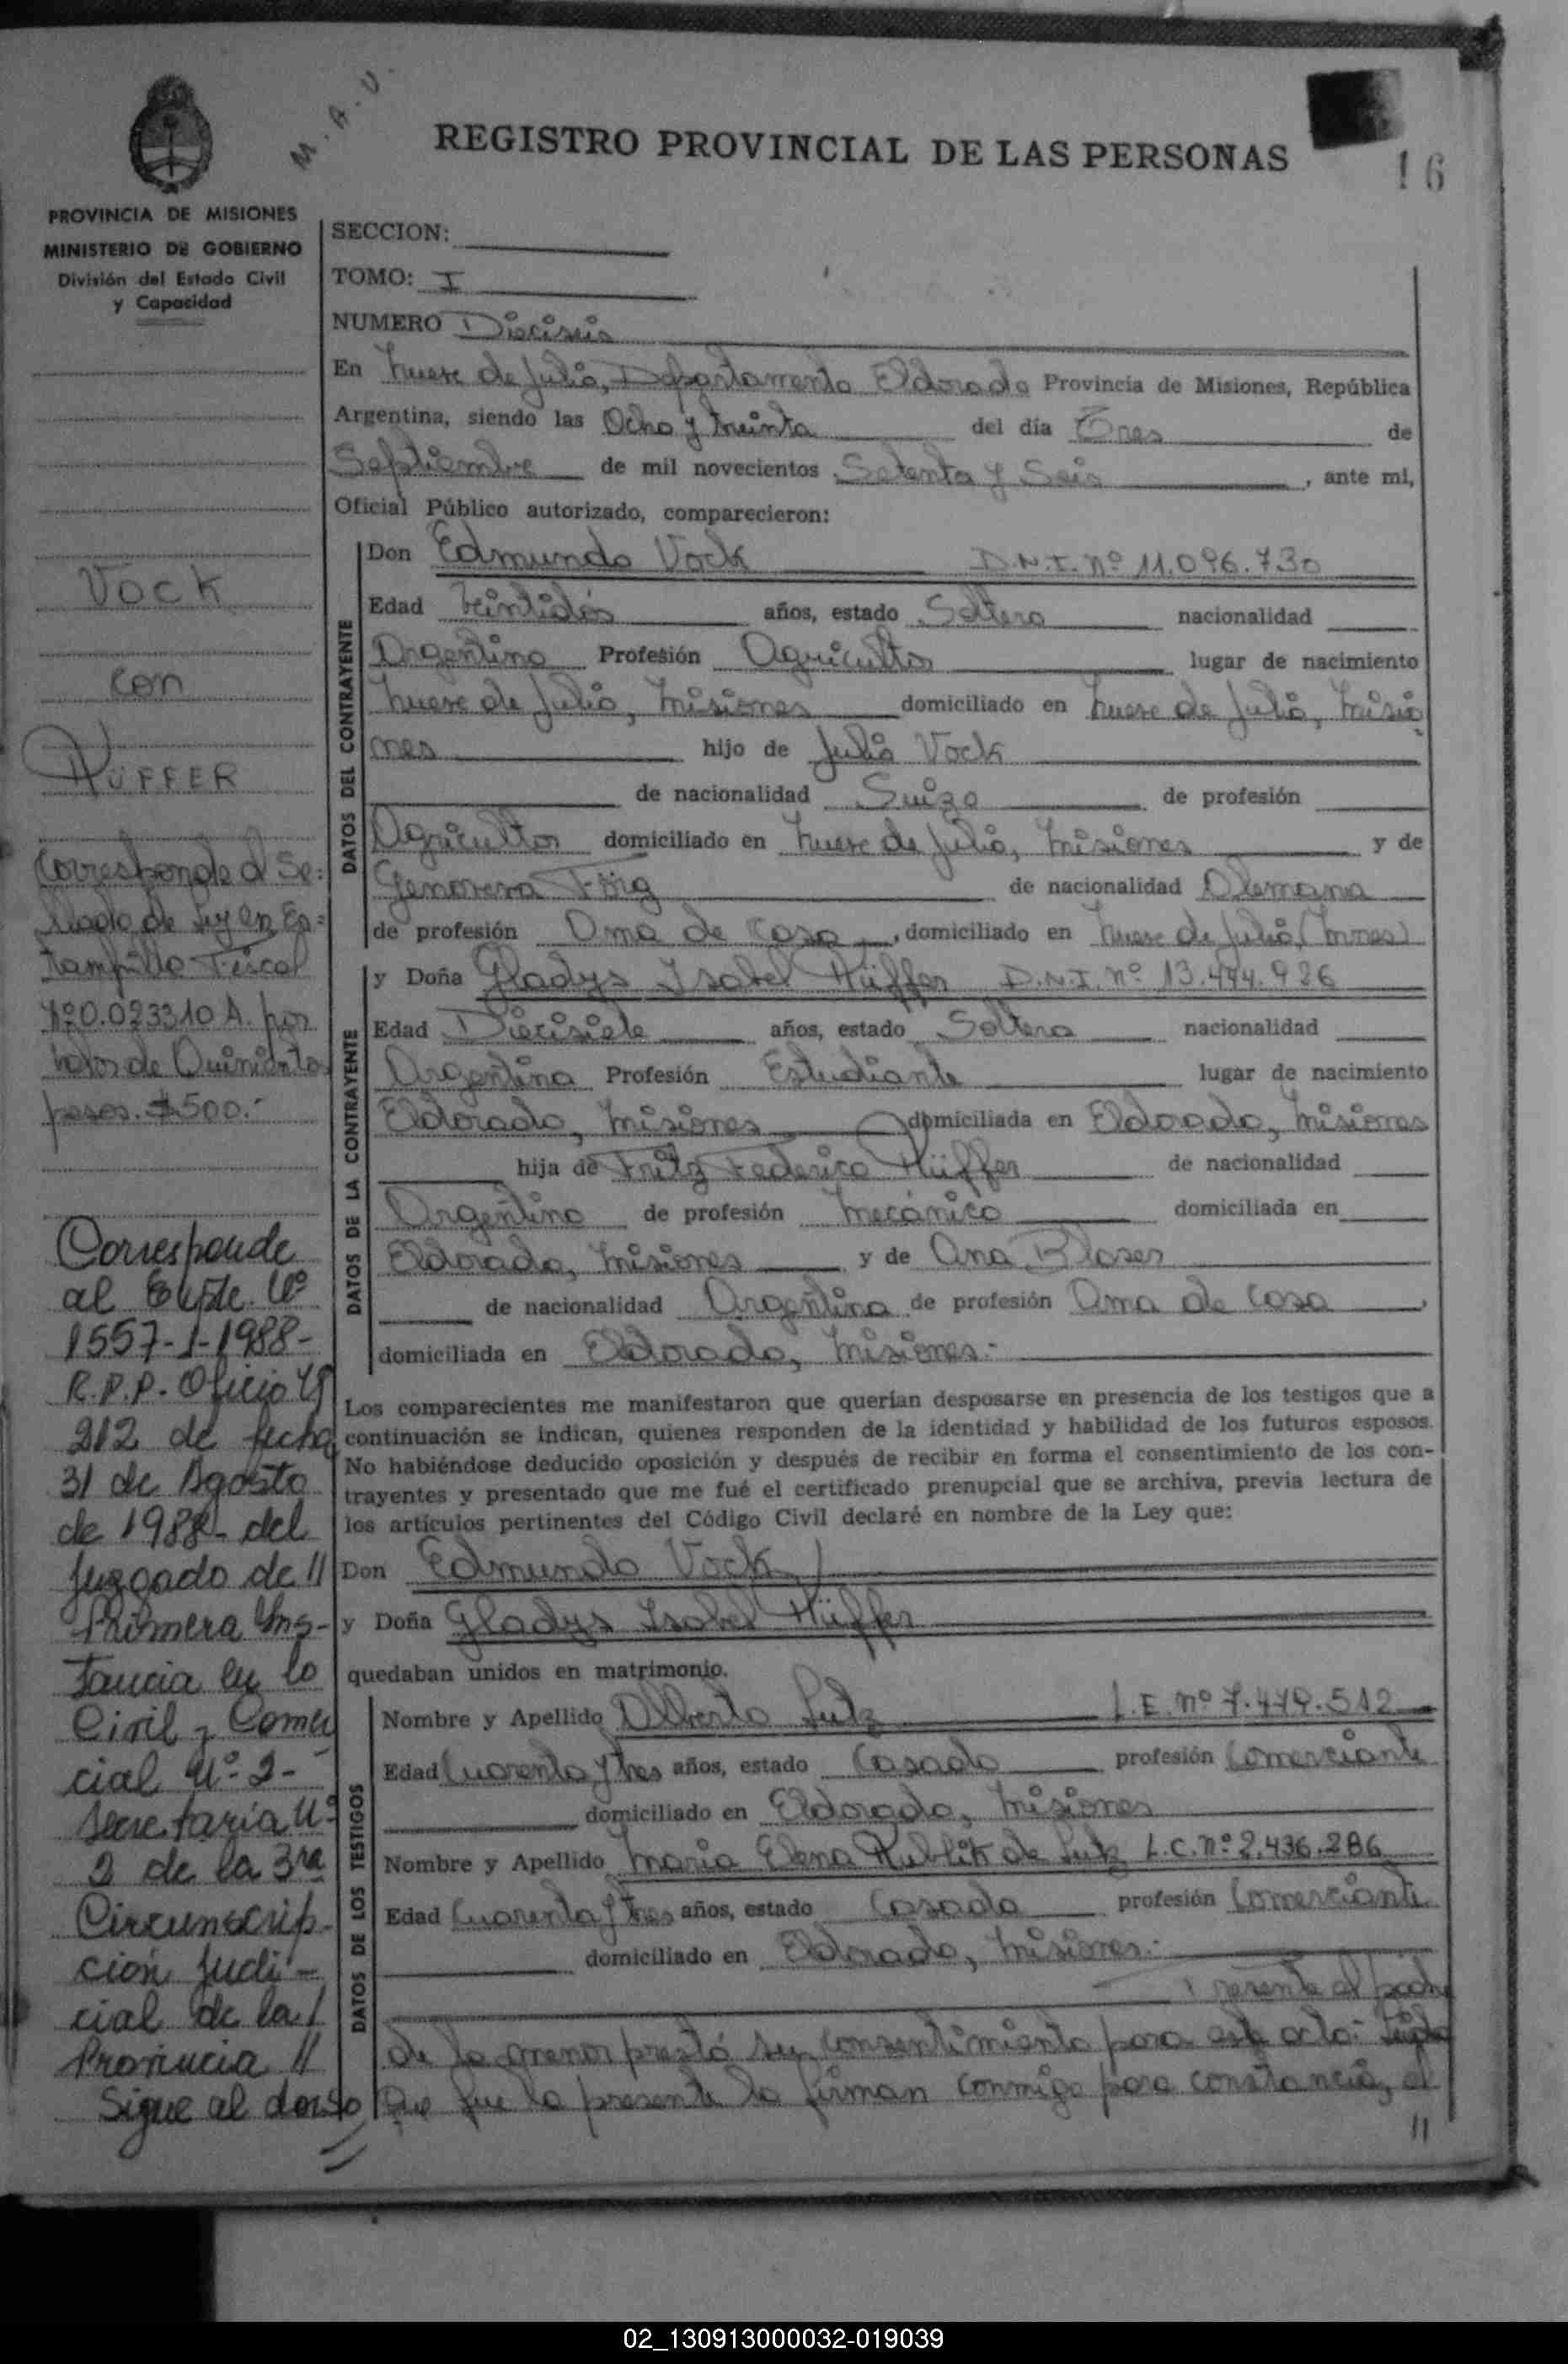 M.A.V.
REGISTRO PROVINCIAL DE LAS PERSONAS
16
PROVINCIA DE MISIONES
MINISTERIO DE GOBIERNO
División del Estado Civil
y Capacidad
VOCK
con
HÜFFER
Corresponde al Se=
llado de Ley en Es=
tampilla Fiscal
Nº0.023310 A. por
valor de Quinientos
pesos. $500.-
Corresponde
al Expte. Nº
1557-1-1988-
R.P.P. Oficio Nº
212 de fecha
31 de Agosto
de 1988- del
Juzgado de //
Primera Ins-
tancia en lo
Civil y Comer
cial Nº 2-
Secretaría Nº
2 de la 3ra
Circunscrip-
ción Judi-
cial de la /
Provincia //
Sigue al dorso
SECCION:
TOMO: I
NUMERO Dieciseis
En Nueve de Julio, Departamento Eldorado Provincia de Misiones, República
Argentina, siendo las Ocho y treinta del día Tres de
Septiembre de mil novecientos Setenta y Seis, ante mi,
Oficial Público autorizado, comparecieron:
DATOS DEL CONTRAYENTE
Don Edmundo Vock D.N.I. nº 11.096.730
Edad Veintidós años, estado Soltero nacionalidad
Argentino Profesión Agricultor lugar de nacimiento
Nueve de Julio, Misiones domiciliado en Nueve de Julio, Misio
nes hijo de Julio Vock
de nacionalidad Suizo de profesión
Agricultor domiciliado en Nueve de Julio, Misiones y de
Genoveva Förg de nacionalidad Alemana
de profesión Ama de casa, domiciliado en Nueve de Julio (Mnes)
DATOS DE LA CONTRAYENTE
y Doña Gladys Isabel Hüffer D.N.I. nº 13.444.926
Edad Diecisiete años, estado Soltera nacionalidad
Argentina Profesión Estudiante lugar de nacimiento
Eldorado, Misiones domiciliada en Eldorado, Misiones
hija de Fritz Federico Hüffer de nacionalidad
Argentino de profesión Mecánico domiciliada en
Eldorado, Misiones y de Ana Blaser
de nacionalidad Argentina de profesión Ama de casa,
domiciliada en Eldorado, Misiones.-
Los comparecientes me manifestaron que querían desposarse en presencia de los testigos que a
continuación se indican, quienes responden de la identidad y habilidad de los futuros esposos.
No habiéndose deducido oposición y después de recibir en forma el consentimiento de los con-
trayentes y presentado que me fué el certificado prenupcial que se archiva, previa lectura de
los artículos pertinentes del Código Civil declaré en nombre de la Ley que:
Don Edmundo Vock
y Doña Gladys Isabel Hüffer
quedaban unidos en matrimonio.
DATOS DE LOS TESTIGOS
Nombre y Apellido Alberto Lutz L.E. nº 7.479.512
Edad Cuarenta y tres años, estado Casado profesión Comerciante
domiciliado en Eldorado, Misiones
Nombre y Apellido María Elena Kublik de Lutz L.C. nº 2.436.286
Edad Cuarenta y tres años, estado Casada profesión Comerciante
domiciliado en Eldorado, Misiones.-
Presente el padre
de la menor prestó su consentimiento para este acto. Leida
que fue la presente la firman conmigo para constancia, el
//
02_130913000032-019039